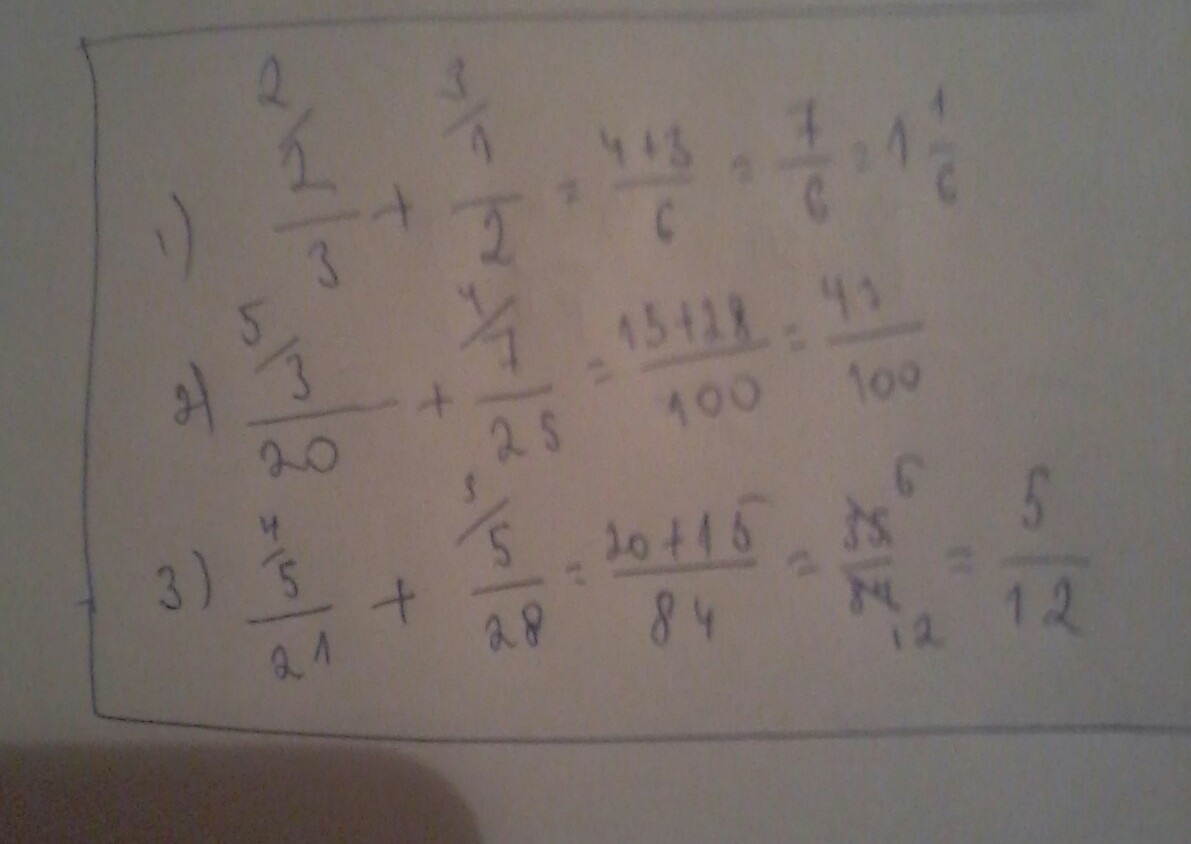 1) 2/2/3 + 3/1/2 = 4+3/6 = 7/6 = 1 1/6
2) 5/3/20 + 4/7/25 = 15+28/100 = 43/100
3) 4/5/21 + 3/5/28 = 20+15/84 = 35/84 5/12 = 5/12